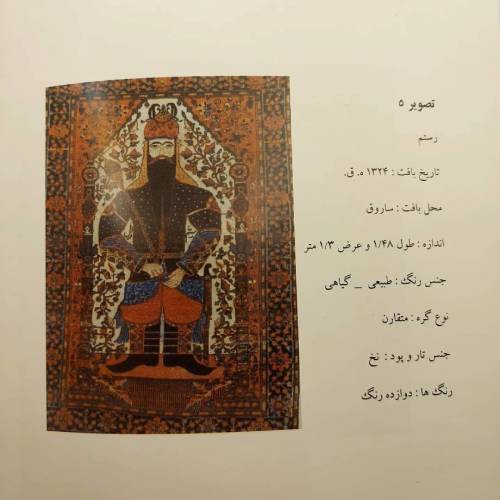 تصویر ۵
رستم
تاریخ بافت : ۱۳۲۴ ه. ق.
محل بافت : ساروق
اندازه : طول ۱/۴۸ و عرض ۱/۳ متر
جنس رنگ : طبیعی _ گیاهی
نوع گره : متقارن
جنس تار و پود : نخ
رنگ ها : دوازده رنگ